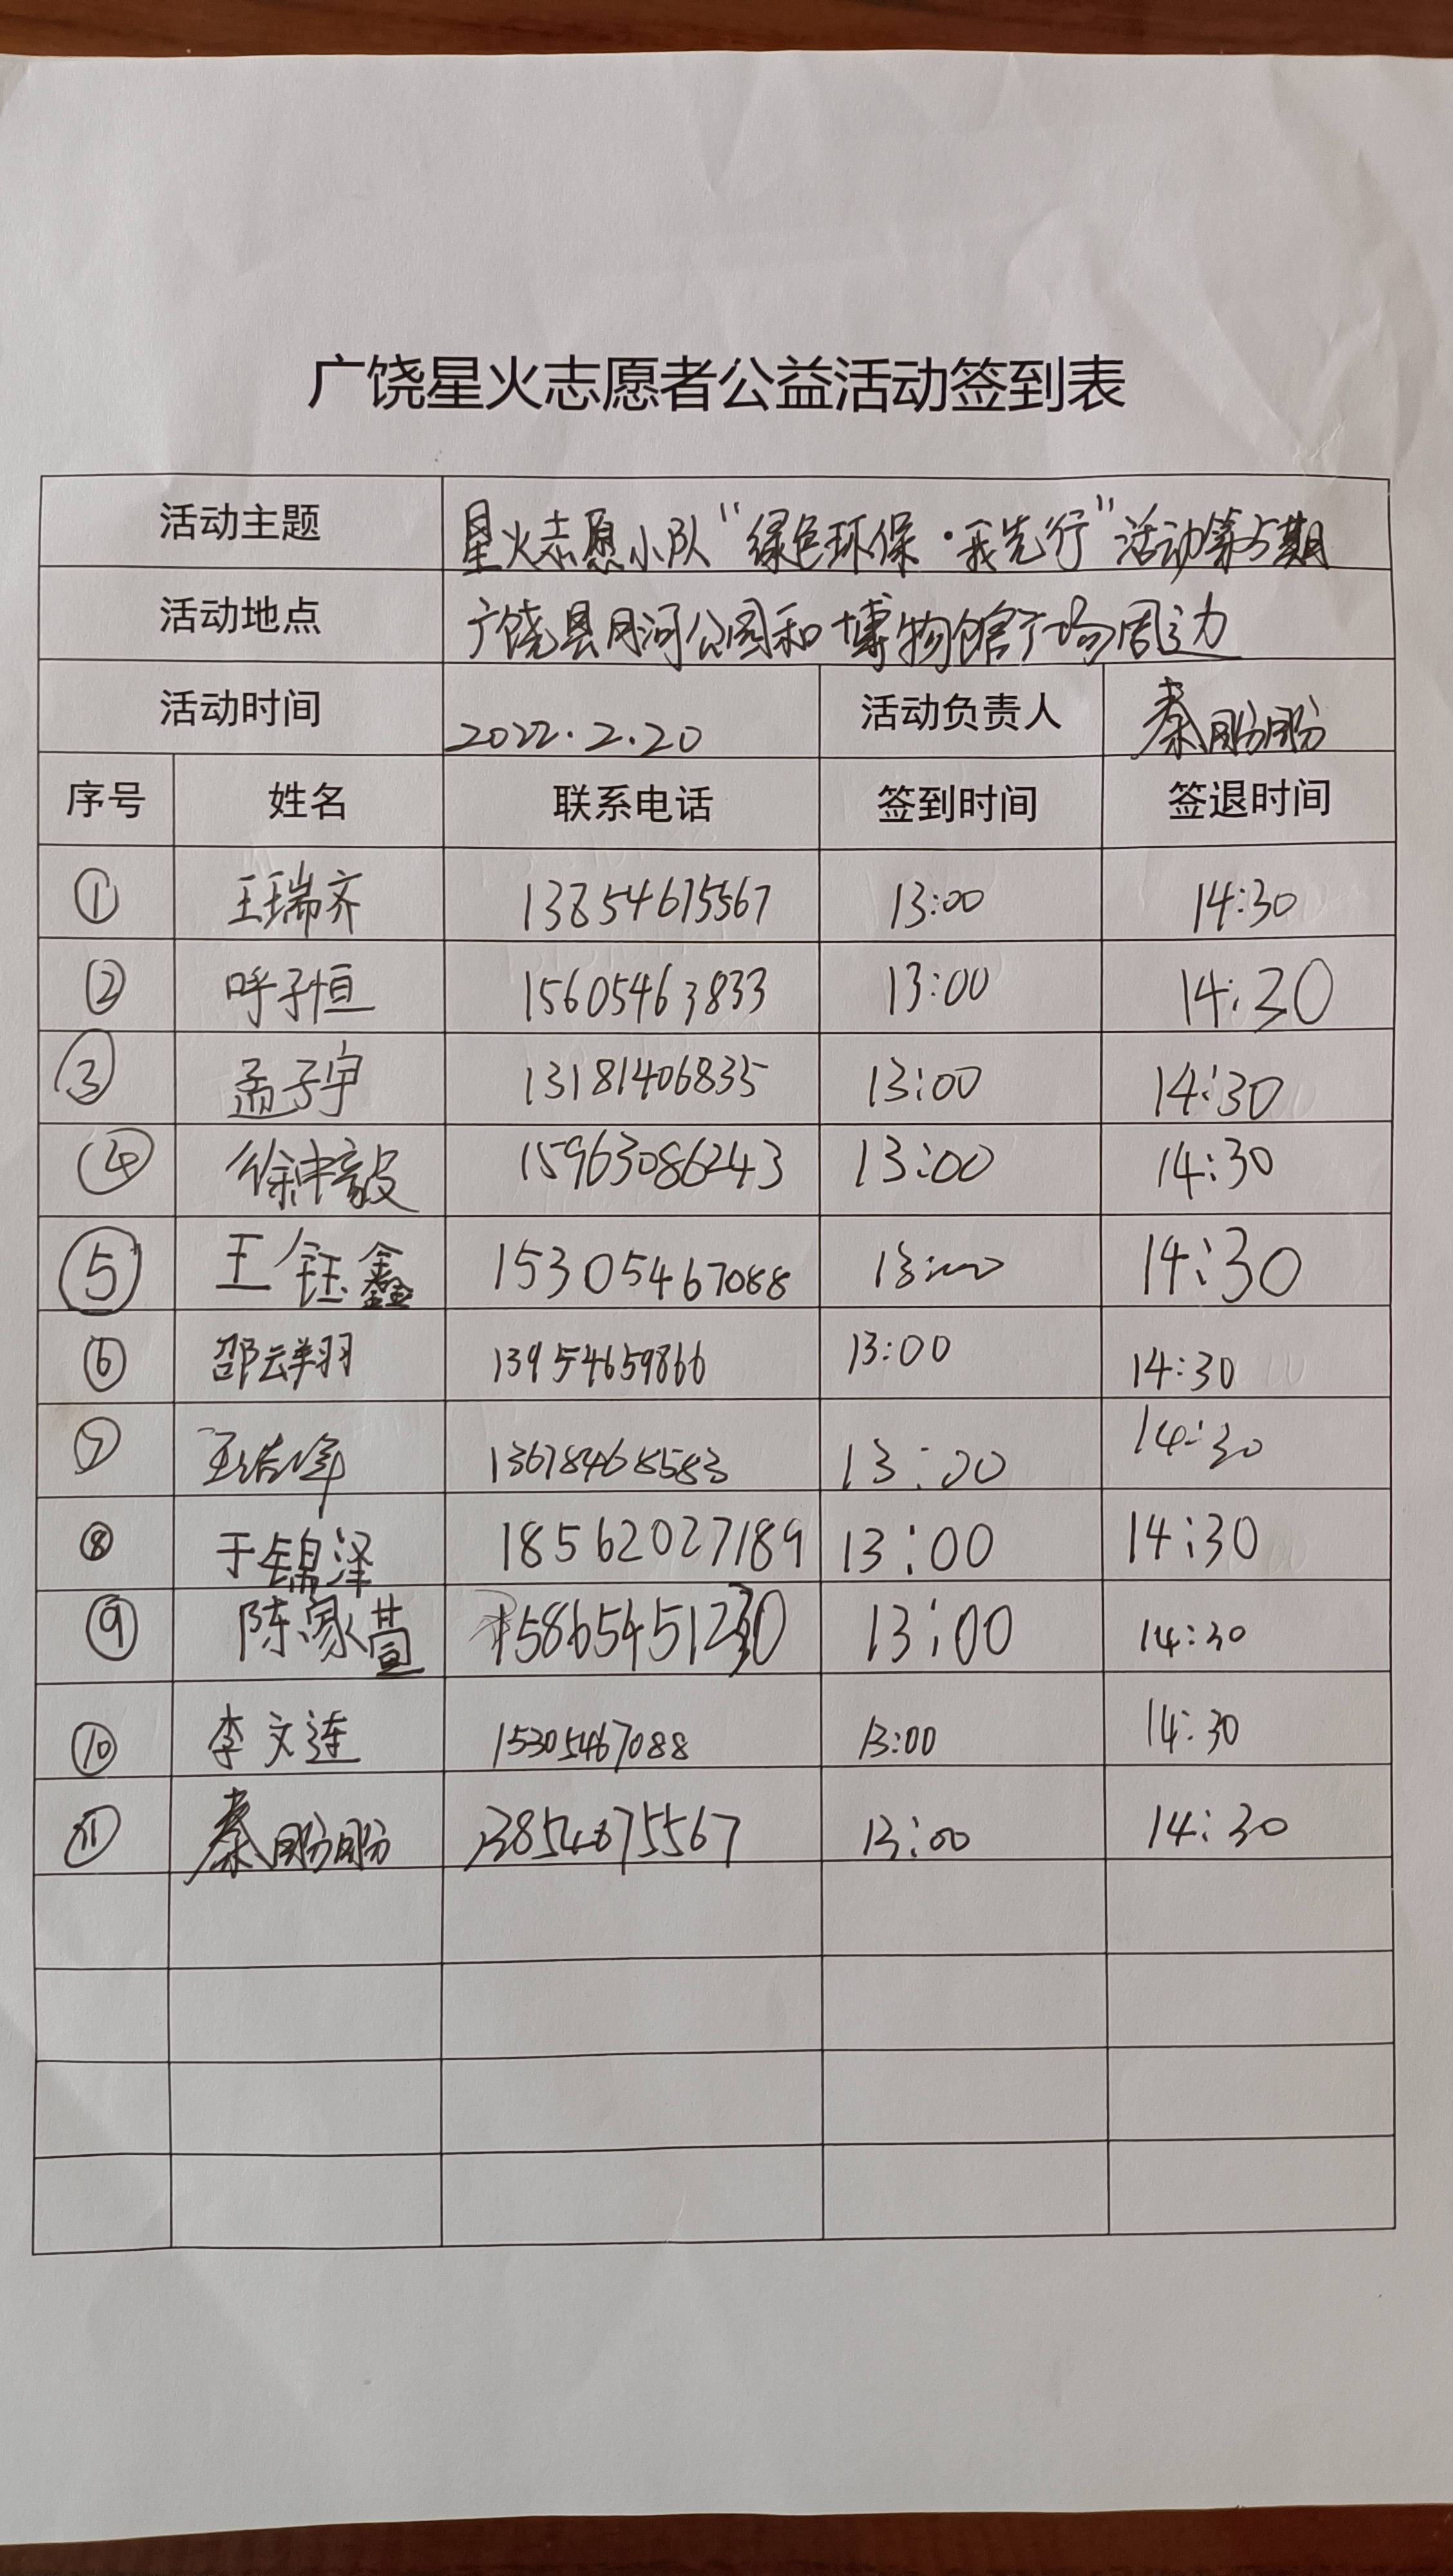 广饶星火志愿者公益活动签到表
活动主题 星火志愿小队“绿色环保·我先行”活动第5期
活动地点 广饶县月河公园和博物馆广场周边
活动时间 2022.2.20 活动负责人 秦盼盼
序号 姓名 联系电话 签到时间 签退时间
① 王瑞齐 13854675567 13:00 14:30
② 呼子恒 15605463833 13:00 14:30
③ 孟子宇 13181406835 13:00 14:30
④ 徐中毅 15963086243 13:00 14:30
⑤ 王钰鑫 15305467088 13:00 14:30
⑥ 邵云翔 13954659866 13:00 14:30
⑦ 王浩峰 13678468583 13:00 14:30
⑧ 于锦泽 18562027189 13:00 14:30
⑨ 陈家萱 13:00 14:30
⑩ 李文莲 15305467088 13:00 14:30
⑪ 秦盼盼 13854675567 13:00 14:30